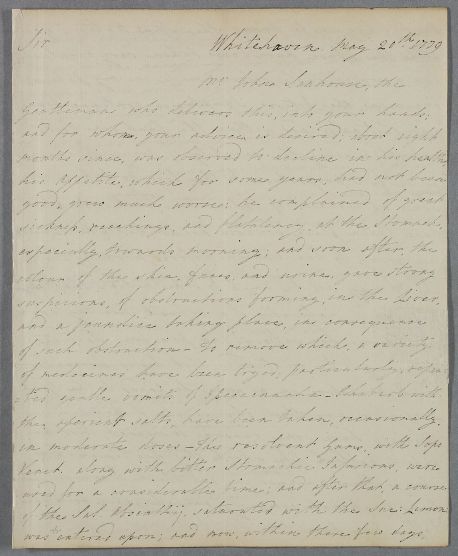 Sir
Whitehaven May 20th 1779
Mr John Senhouse, the
Gentleman who delivers this, into your hands;
and for whom, your advice is desired; about eight
months since, was observed to decline in his health
his Appetite, which for some years, had not been
good, grew much worse; he complained of great
sickness, reachings, and flatulency, at the Stomach,
especially, towards morning; and soon after, the
colour of the skin, faeces, and urine, gave strong
suspicions, of obstructions forming, in the Liver,
and a jaundice taking place, in consequence
of such obstruction – To remove which, a variety
of medecines have been tryed, particularly, repea
ted gentle vomits of Ipecacuanha – Rhubarb with
the aperient salts, have been taken, occasionally,
in moderate doses – The resolvent Gums, with Sapo
Venet. along with bitter Stomachic Infusions, were
used for a considerable time; and after that a course
of the Sal Absinthij, saturated with the Suc: Limon
was entered upon; and now, within these few days,